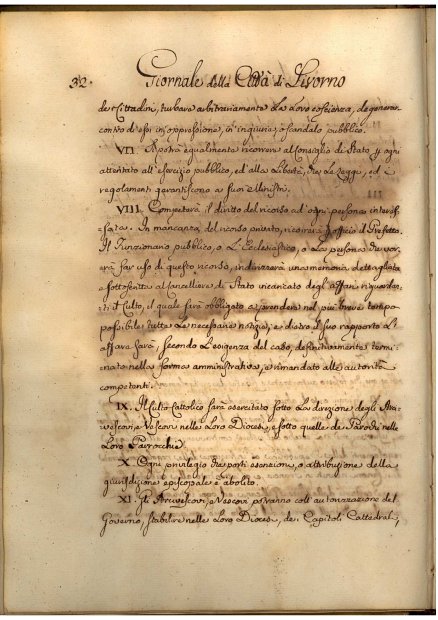 32. Giornale della Città di Livorno
de' Cittadini, turbare arbitrariamente la loro coscienza, degenerar
contro di essi in oppressione, in ingiuria, o scandalo pubblico.
VII. Si potrà egualmente ricorrere al Consiglio di Stato p ogni
attentato all' esercizio pubblico, ed alla Libertà, che le Leggi, ed i
regolamenti garantiscono a suoi Ministri.
VIII. Competerà il diritto del ricorso ad ogni persona interes-
sata. In mancanza del ricorso privato, ricorrerà p officio il Prefetto.
Il Funzionario pubblico, o L' Ecclesiastico, o La persona che vor-
rà far uso di questo ricorso, indirizzerà una memoria dettagliata
e sottoscritta al Consigliere di Stato incaricato degli affari riguardan-
ti il Culto, il quale sarà obbligato a prendere nel più breve tempo
possibile tutte Le necessarie notizie; e dietro il suo rapporto L' af-
fare sarà, secondo L' esigenza del caso, definitivamente termi-
nato nella forma amministrativa, o rimandato alle autorità
competenti.
IX. Il Culto Cattolico sarà esercitato sotto La direzione degli Arci-
vescovi, e Vescovi nelle Loro Diocesi, e sotto quelle de' Parochi nelle
Loro Parrocchie.
X. Ogni privilegio che porti esenzione, o attribuzione della
giurisdizione episcopale è abolito.
XI. Gli Arcivescovi, e Vescovi potranno coll' autorizzazione del
Governo, stabilire nelle Loro Diocesi, de' Capitoli Cattedrali,